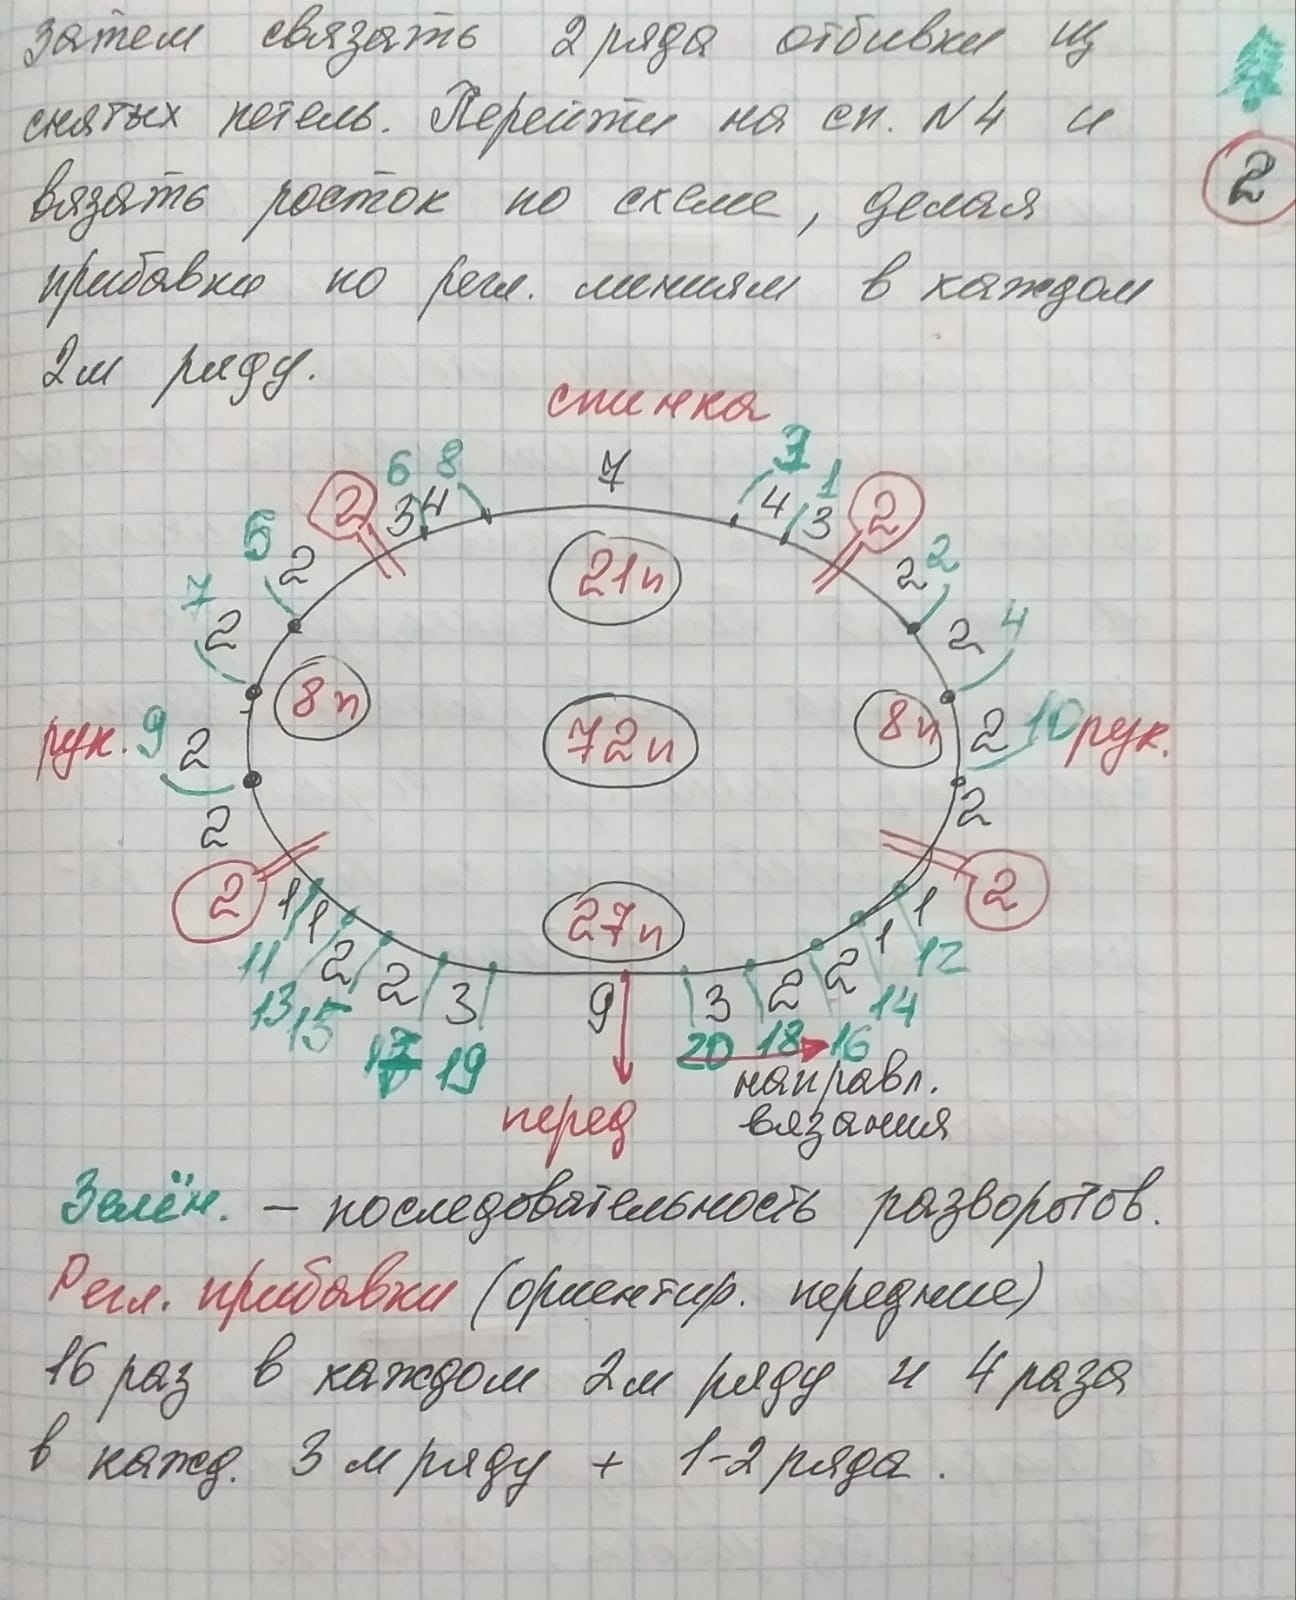 Затем связать 2 ряда отбивки из
снятых петель. Перейти на сп. N4 и
вязать росток по схеме, делая
прибавки по регл. линиям в каждом
2м ряду.
2
спинка
6 8 7 3 1
2 3 4 4 3 2
5 2 21п 2 2
7 2 2 4
8п 8п
рук. 9 2 72п 2 10 рук.
2 2
2 27п 2
1 1 2 2 3 9 3 2 2 1 1
11 13 15 17 19 20 18 16 14 12
направл.
перед вязания
Зелён. – последовательность разворотов.
Регл. прибавки (ориентир. передние)
16 раз в каждом 2м ряду и 4 раза
в кажд. 3м ряду + 1-2 ряда.